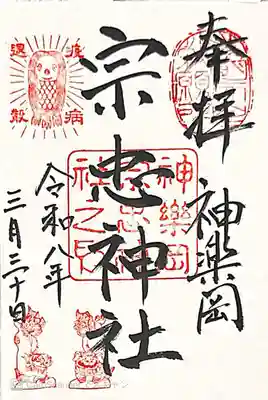 奉拝
神楽岡
宗忠神社
神樂岡
宗忠神
社之印
令和八年
三月三十日
疫病
退散